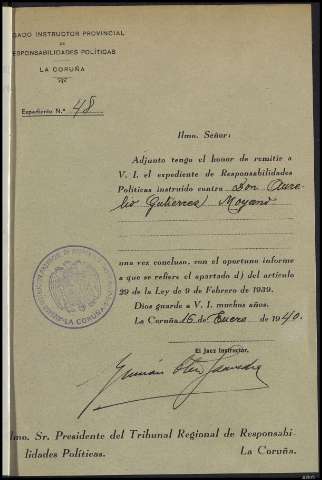 GADO INSTRUCTOR PROVINCIAL
DE
RESPONSABILIDADES POLÍTICAS
LA CORUÑA
Expediente N.º 48
Ilmo. Señor:
Adjunto tengo el honor de remitir a
V. I. el expediente de Responsabilidades
Políticas instruido contra Don Aure-
lio Gutierrez Moyano
una vez concluso, con el oportuno informe
a que se refiere el apartado d) del artículo
29 de la Ley de 9 de Febrero de 1939.
Dios guarde a V. I. muchos años.
La Coruña 16 de Enero de 1940.
El Juez Instructor,
LA CORUÑA
lmo. Sr. Presidente del Tribunal Regional de Responsabi-
lidades Políticas. La Coruña.